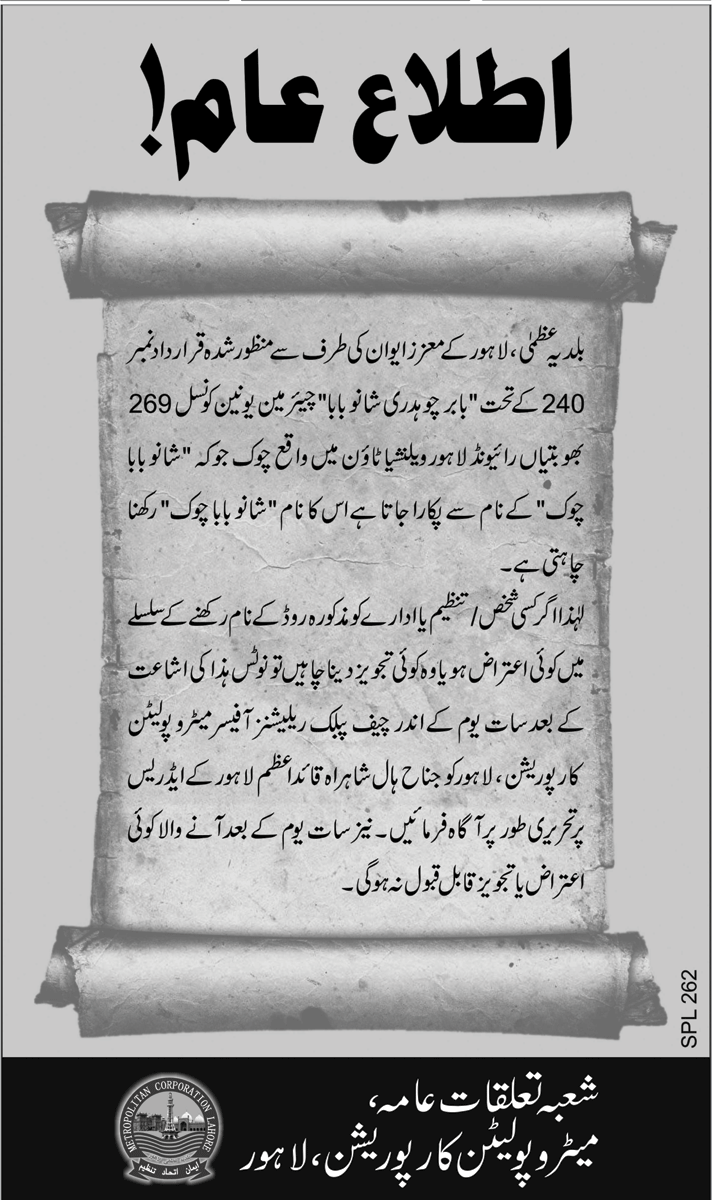 اطلاع عام!
بلدیہ عظمٰی، لاہور کے معزز ایوان کی طرف سے منظور شدہ قرارداد نمبر
240 کے تحت "بابر چوہدری شانو بابا" چیئرمین یونین کونسل 269
بھوبتیاں رائیونڈ لاہور ویلنشیا ٹاؤن میں واقع چوک جو کہ "شانو بابا
چوک" کے نام سے پکارا جاتا ہے اس کا نام "شانو بابا چوک" رکھنا
چاہتی ہے۔
لہٰذا اگر کسی شخص / تنظیم یا ادارے کو مذکورہ روڈ کے نام رکھنے کے سلسلے
میں کوئی اعتراض ہو یا وہ کوئی تجویز دینا چاہیں تو نوٹس ہذا کی اشاعت
کے بعد سات یوم کے اندر چیف پبلک ریلیشنز آفیسر میٹروپولیٹن
کارپوریشن، لاہور کو جناح ہال شاہراہ قائداعظم لاہور کے ایڈریس
پر تحریری طور پر آگاہ فرمائیں۔ نیز سات یوم کے بعد آنے والا کوئی
اعتراض یا تجویز قابل قبول نہ ہوگی۔
SPL 262
شعبہ تعلقات عامہ،
میٹروپولیٹن کارپوریشن، لاہور
METROPOLITAN CORPORATION LAHORE
ایمان اتحاد تنظیم